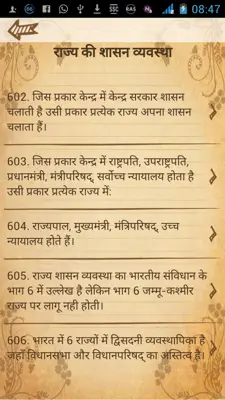 08:47
राज्य की शासन व्यवस्था
602. जिस प्रकार केन्द्र में केन्द्र सरकार शासन
चलाती है उसी प्रकार प्रत्येक राज्य अपना शासन
चलाता हैं।
603. जिस प्रकार केन्द्र में राष्ट्रपति, उपराष्ट्रपति,
प्रधानमंत्री, मंत्रीपरिषद्, सर्वोच्च न्यायालय होता है
उसी प्रकार प्रत्येक राज्य में:
604. राज्यपाल, मुख्यमंत्री, मंत्रिपरिषद्, उच्च
न्यायालय होते हैं।
605. राज्य शासन व्यवस्था का भारतीय संविधान के
भाग 6 में उल्लेख है लेकिन भाग 6 जम्मू-कश्मीर
राज्य पर लागू नही होती।
606. भारत में 6 राज्यों में द्विसदनी व्यवस्थापिका है
जहाँ विधानसभा और विधानपरिषद् का अस्तित्व है।